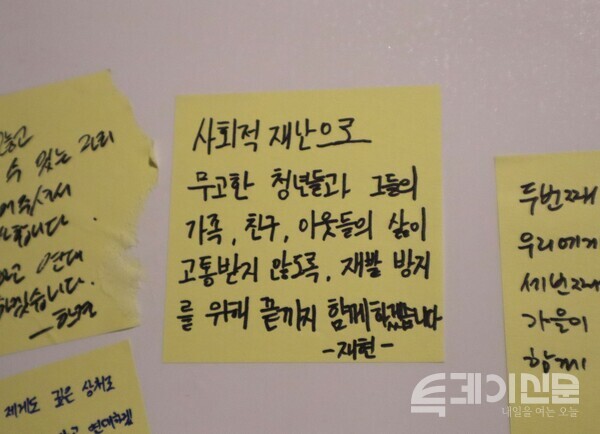 수 있는
합니다.
연대
하겠습니다.
사회적 재난으로
무고한 청년들과 그들의
가족, 친구, 이웃들의 삶이
고통받지 않도록, 재발 방지
를 위해 끝까지 함께하겠습니다
-재현-
두번째
우리에게
세번째
가을이
함께
제게도 깊은 상처로
연대하겠
특케이신문
내일을 여는 오늘